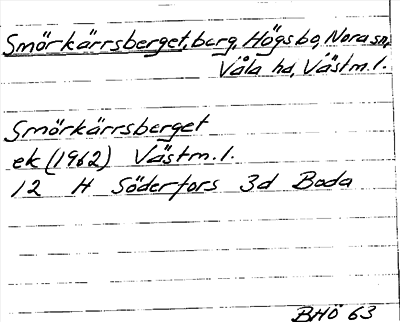 Smörkärrsberget, berg, Högsbo, Nora sn,
Våla hd, Västm.l.
Smörkärrsberget
ek (1962) Västm.l.
12 H Söderfors 3d Boda
BHÖ 63